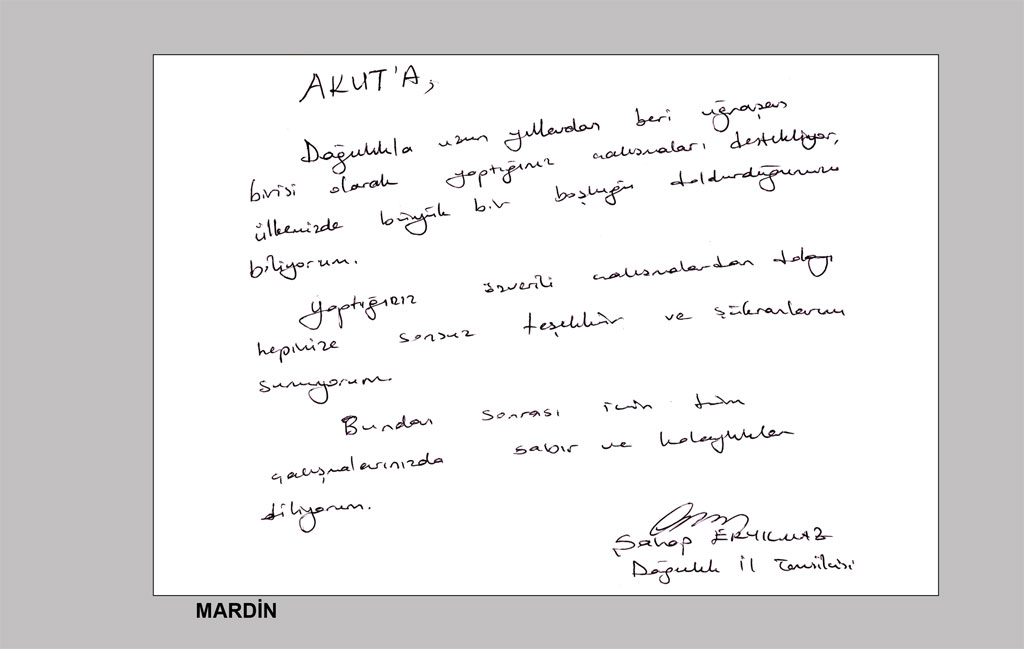 AKUT'A,
Dağcılıkla uzun yıllardan beri uğraşan
birisi olarak yaptığınız çalışmaları destekliyor,
ülkemizde büyük bir boşluğu doldurduğunuzu
biliyorum.
Yaptığınız özverili çalışmalardan dolayı
hepinize sonsuz teşekkür ve şükranlarımı
sunuyorum.
Bundan sonrası için tüm
çalışmalarınızda sabır ve kolaylıklar
diliyorum.
ERYILMAZ
Dağcılık İl Temsilcisi
MARDİN